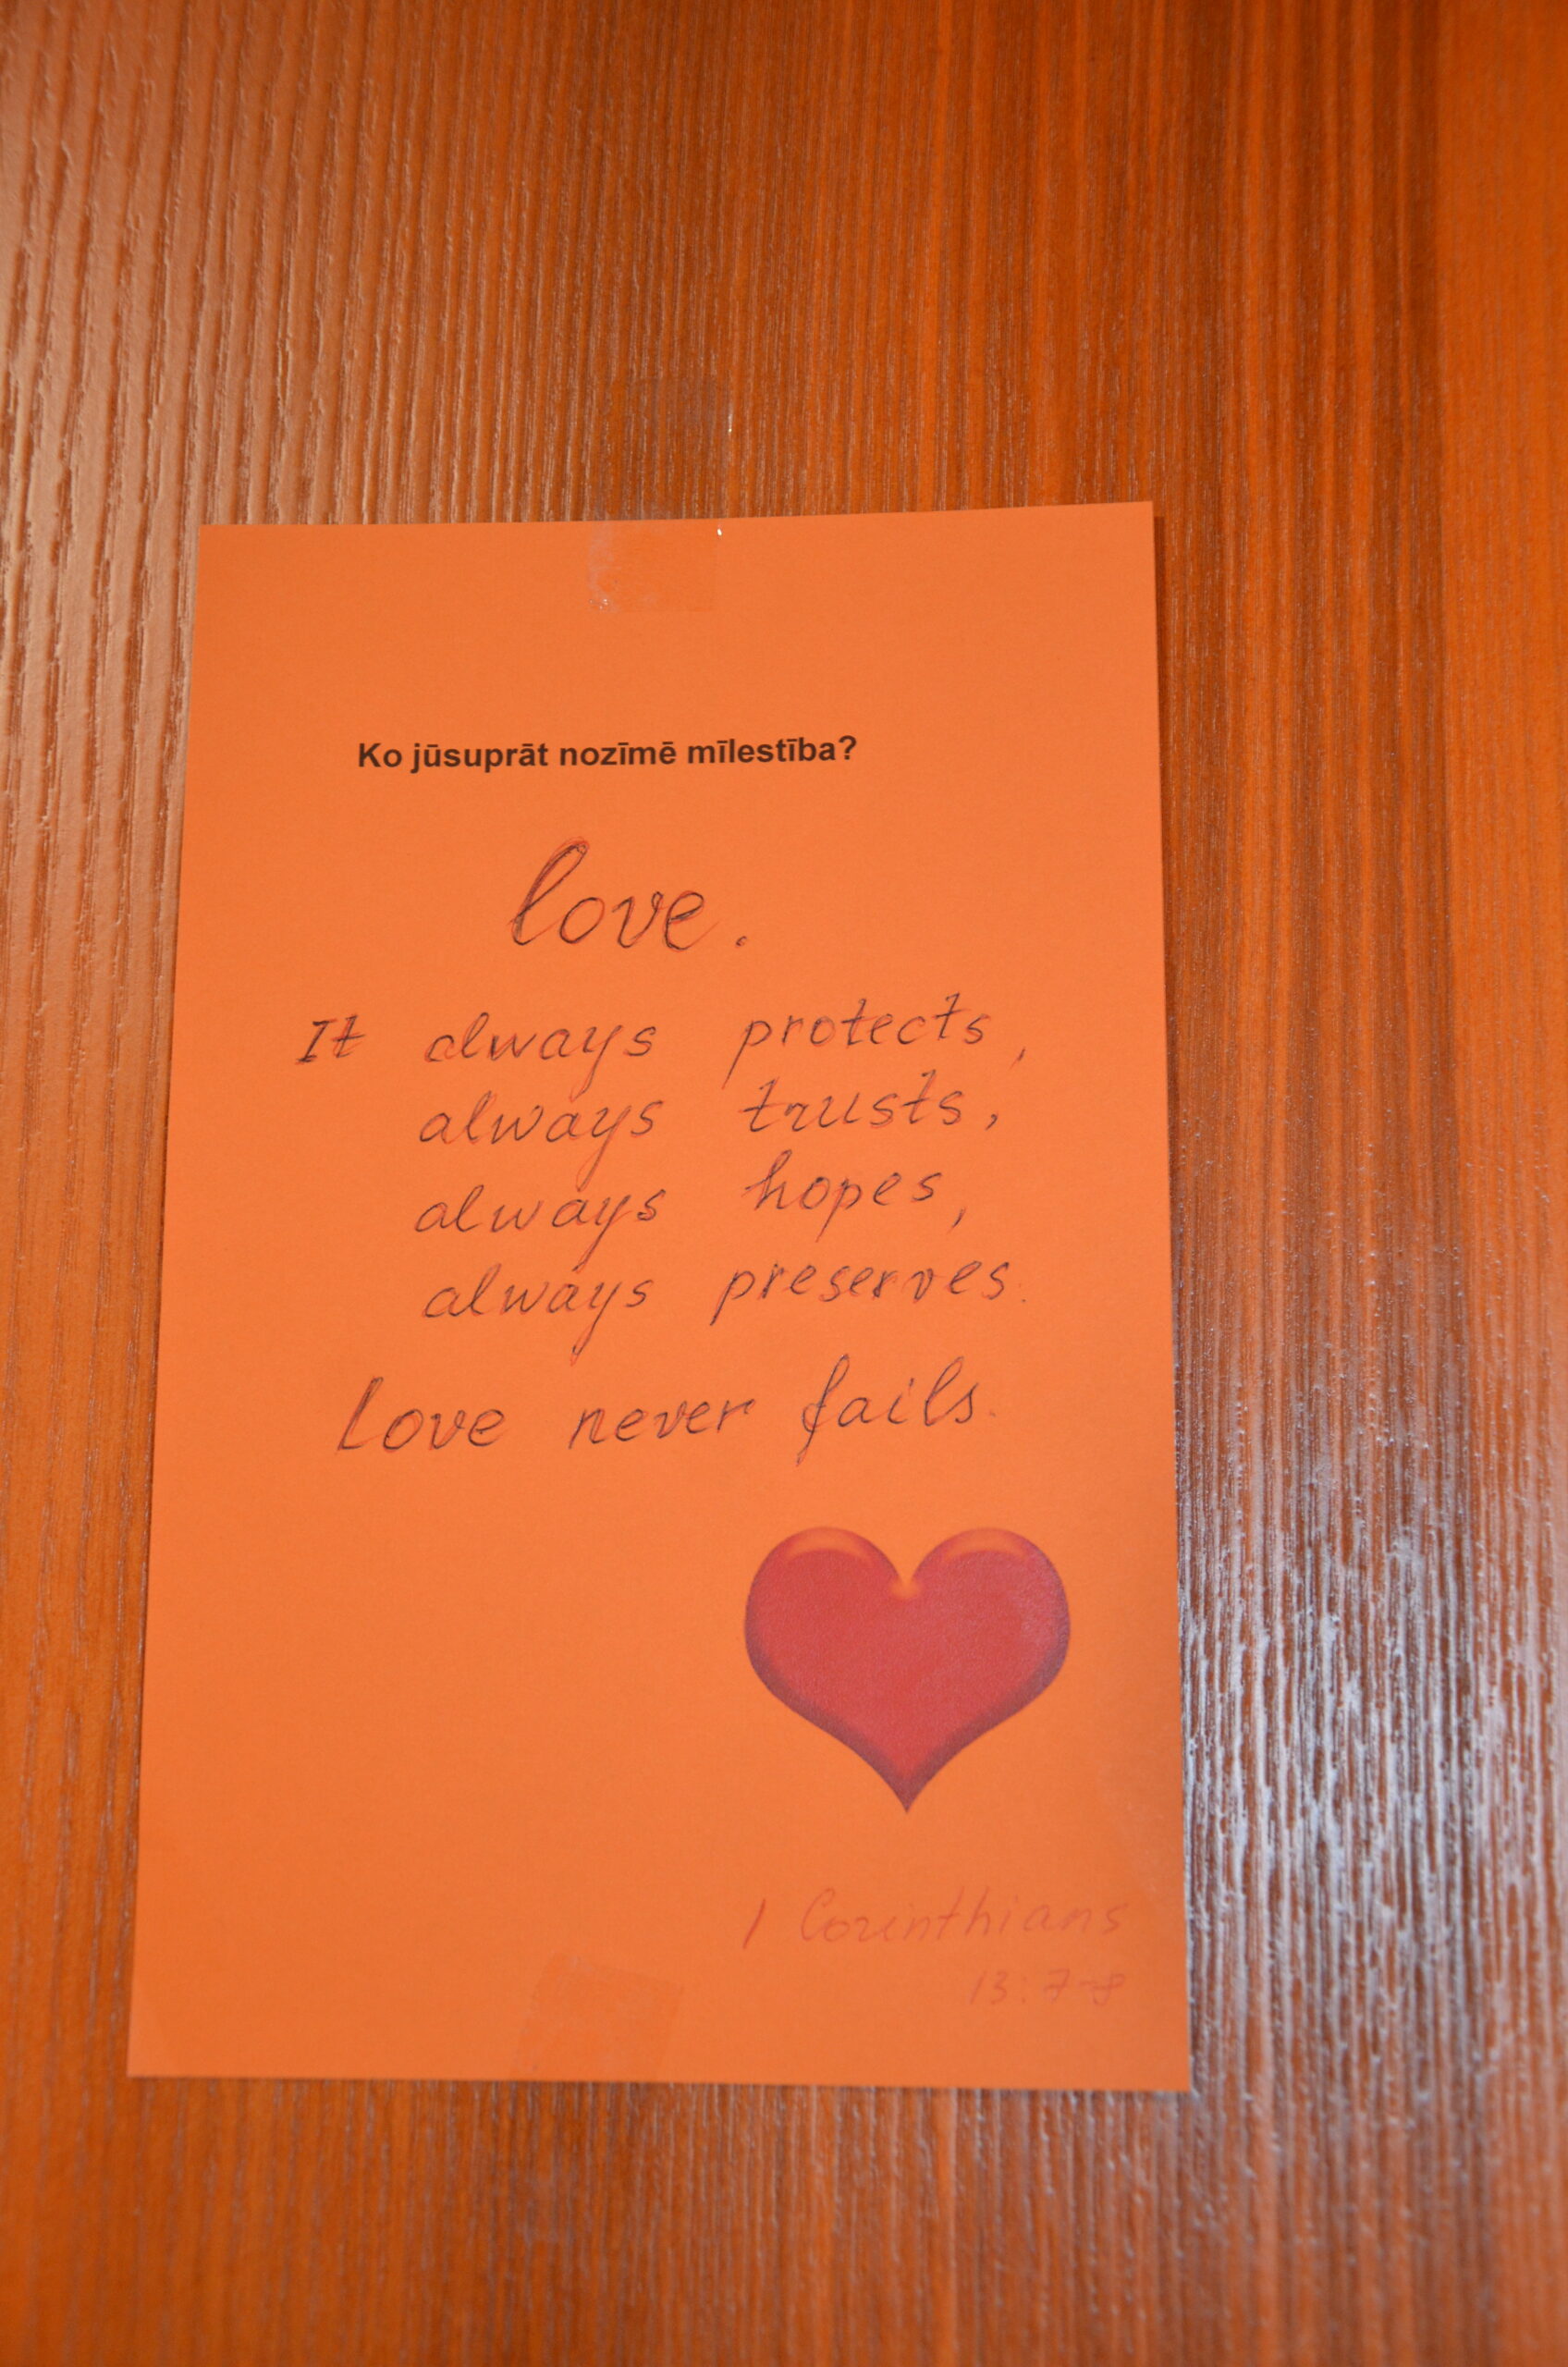 Ko jūsuprāt nozīmē mīlestība?
love.
It always protects,
always trusts,
always hopes,
always preserves.
Love never fails.
1 Corinthians
13:7-8